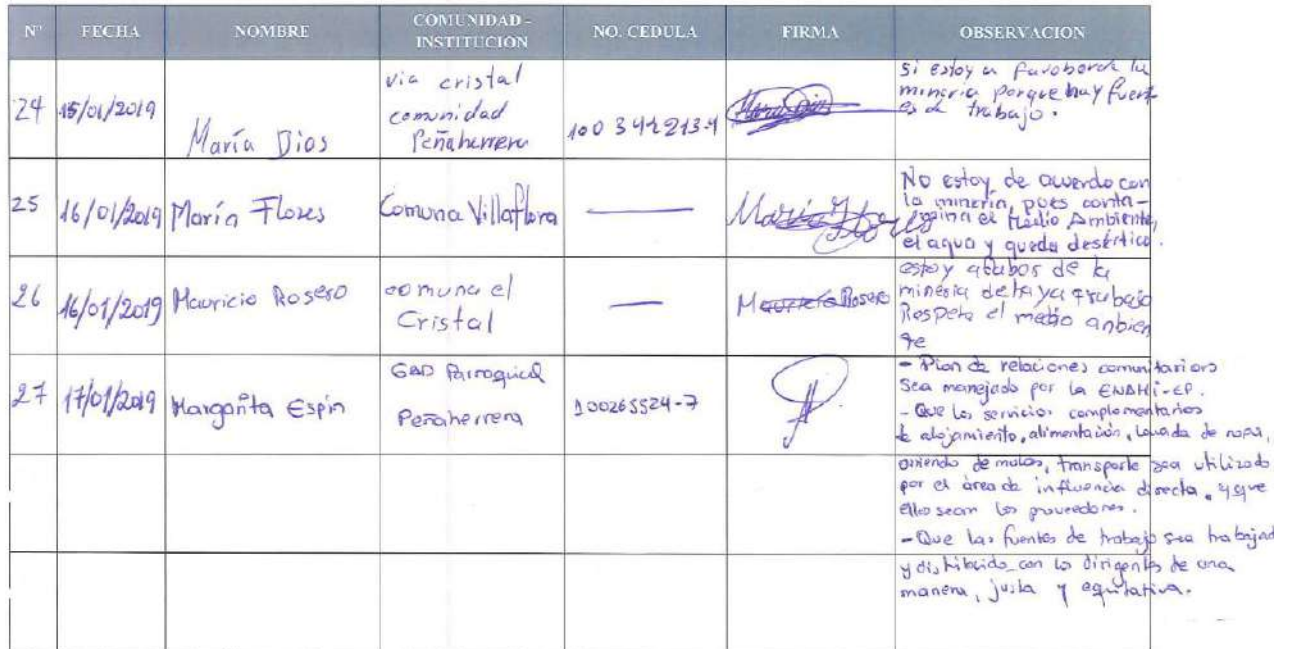 Nº FECHA NOMBRE COMUNIDAD - INSTITUCION NO. CEDULA FIRMA OBSERVACION
24 15/01/2019 María Dios
via cristal
comunidad
Peñaherrera
100344213-1
Si estoy a favoborde la
mineria porque hay fuent
es de trabajo.
25 16/01/2019 María Flores Comuna Villaflora — María Flores
No estoy de acuerdo con
la mineria, pues conta-
mina el Medio Ambiente,
el agua y queda desértico.
26 16/01/2019 Mauricio Rosero
comuna el
Cristal
— Mauricio Rosero
estoy de la
mineria trabajo
Respeta el medio anbien
te
27 17/01/2019 Margarita Espín
GAD Parroquial
Peñaherrera
100265524-7
- Plan de relaciones comunitarios
Sea manejado por la ENAMI-EP.
- Que los servicios complementarios
de alojamiento, alimentación, lavada de ropa,
arriendo de mulas, transporte sea utilizado
por el área de influencia directa, y que
ellos sean los proveedores.
- Que las fuentes de trabajo sea trabajad
y distribuido con los dirigentes de una
manera, justa y equitativa.